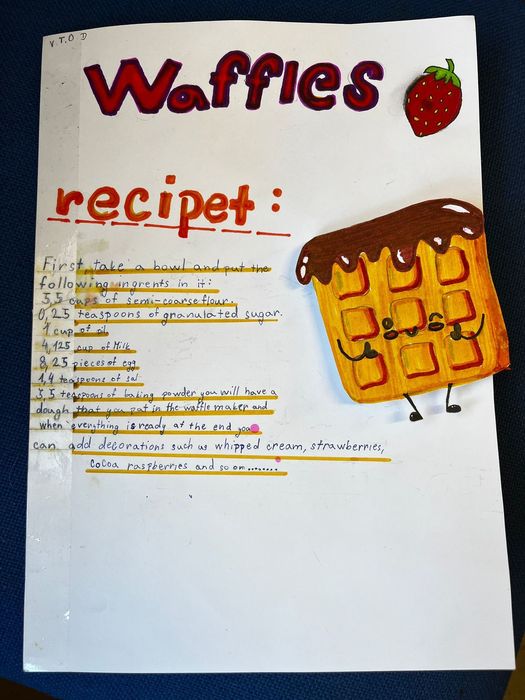 V T.O D
Waffles
recipet:
First take a bowl and put the
following ingrents in it:
3,5 cups of semi-coarse flour.
0,25 teaspoons of granulated sugar.
1 cup of oil
4,125 cup of Milk
8,25 pieces of egg
1,4 teaspoons of sal
3,5 teaspoons of baking powder you will have a
dough that you put in the waffle maker and
when everything is ready at the end you
can add decorations such as whipped cream, strawberries,
cocoa raspberries and so on........